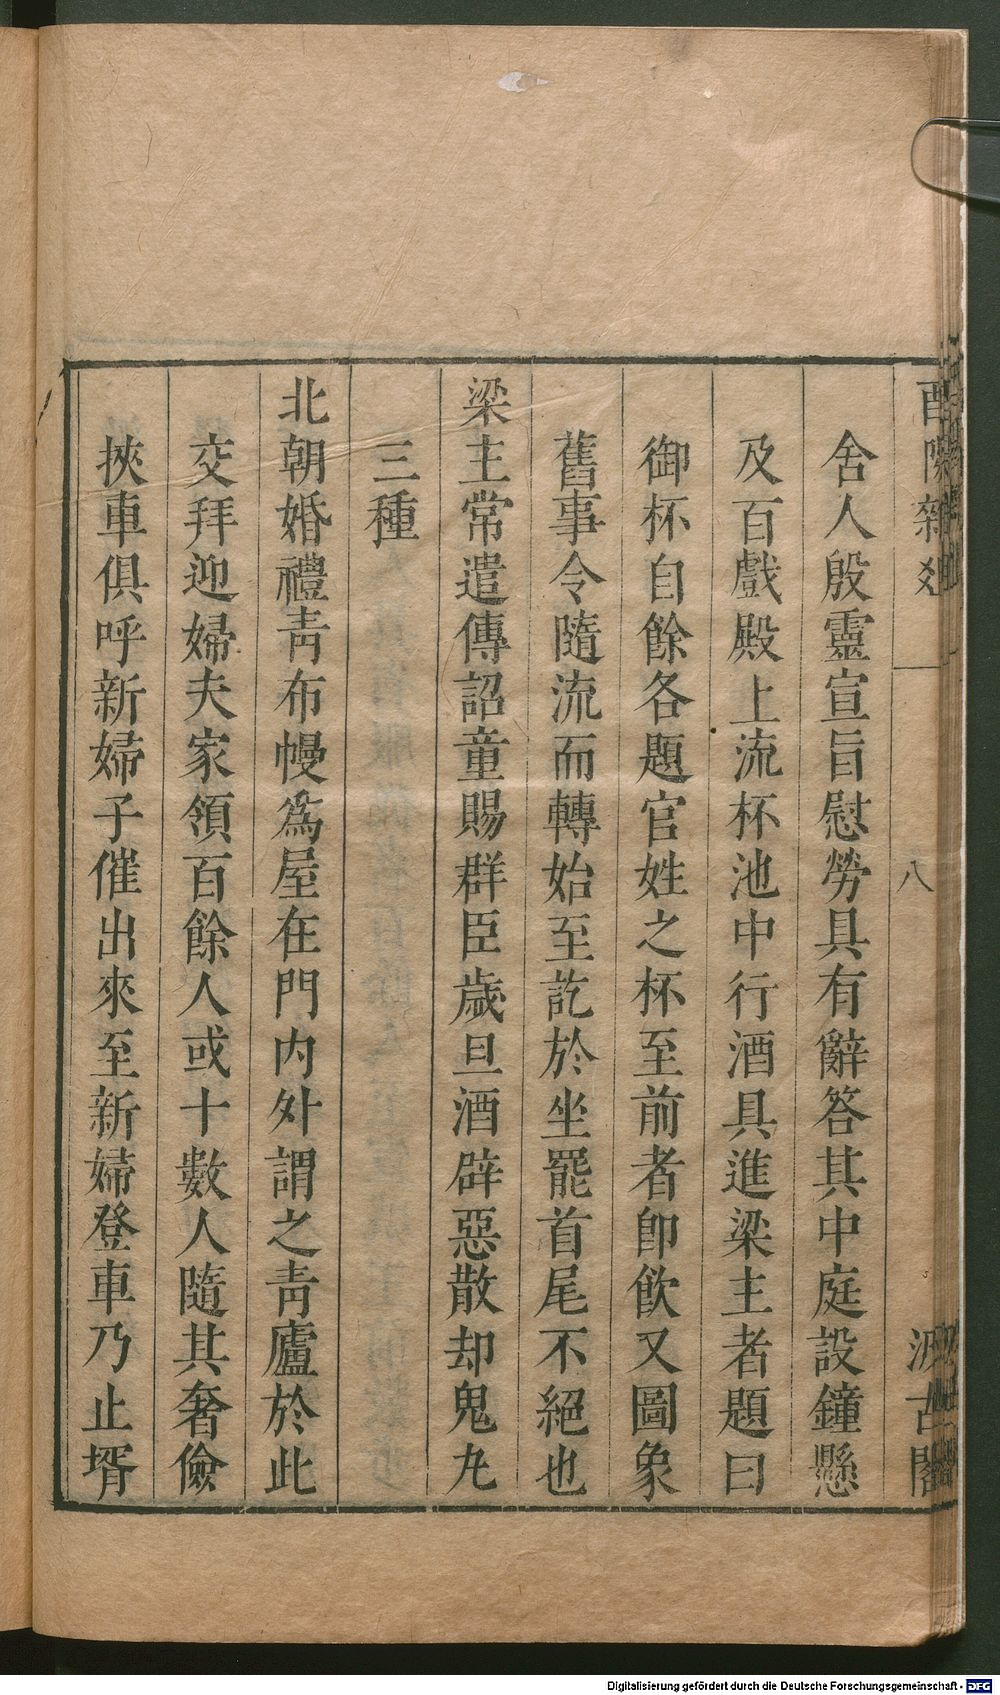 舍人殷靈宣旨慰勞具有辭答其中庭設鐘懸
及百戲殿上流杯池中行酒具進梁主者題曰
御杯自餘各題官姓之杯至前者卽飲又圖象
舊事令隨流而轉始至訖於坐罷首尾不絕也
梁主常遣傳詔童賜群臣歲旦酒辟惡散却鬼丸
三種
北朝婚禮靑布幔爲屋在門內外謂之靑廬於此
交拜迎婦夫家領百餘人或十數人隨其奢儉
挾車俱呼新婦子催出來至新婦登車乃止壻
八
汲古閣
Digitalisierung gefördert durch die Deutsche Forschungsgemeinschaft - DFG